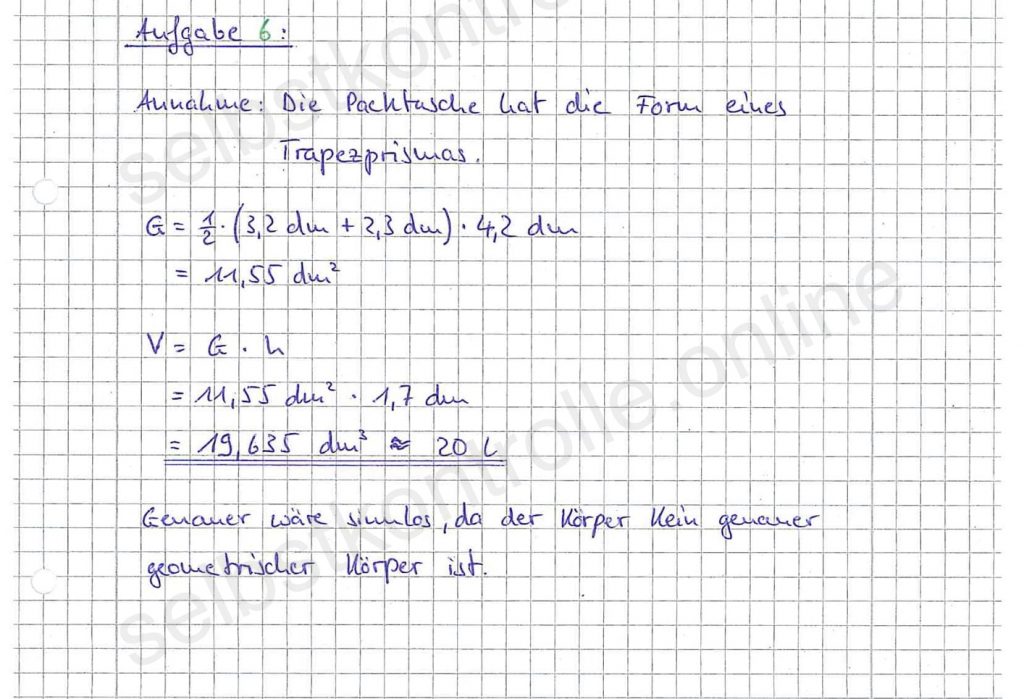 Aufgabe 6:
Annahme: Die Packtasche hat die Form eines
Trapezprismas.
G = 1/2 · (3,2 dm + 2,3 dm) · 4,2 dm
= 11,55 dm²
V = G · h
= 11,55 dm² · 1,7 dm
= 19,635 dm³ ≈ 20 l
Genauer wäre sinnlos, da der Körper kein genauer
geometrischer Körper ist.
selbstkontrolle.online
selbstkontrolle.online